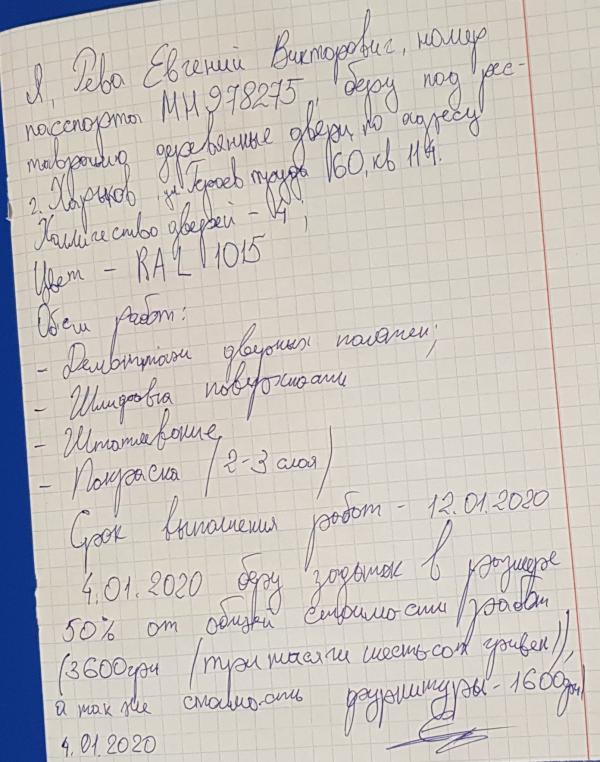 Я, Рева Евгений Викторович, номер
пасспорта МН 978275, беру под рес-
таврацию деревянные двери по адресу
г. Харьков, ул Героев труда 60, кв 114.
Количество дверей - 4;
Цвет - RAL 1015
Обем работ:
- Демонтаж дверных полотен;
- Шлифовка поверхности
- Шпатлевание
- Покраска (2-3 слоя)
Срок выполнения работ - 12.01.2020
4.01.2020 беру задаток в размере
50% от общей стоимости работ
(3600грн (три тысячи шестьсот гривен)),
а так же стоимость фурнитуры - 1600грн
4.01.2020